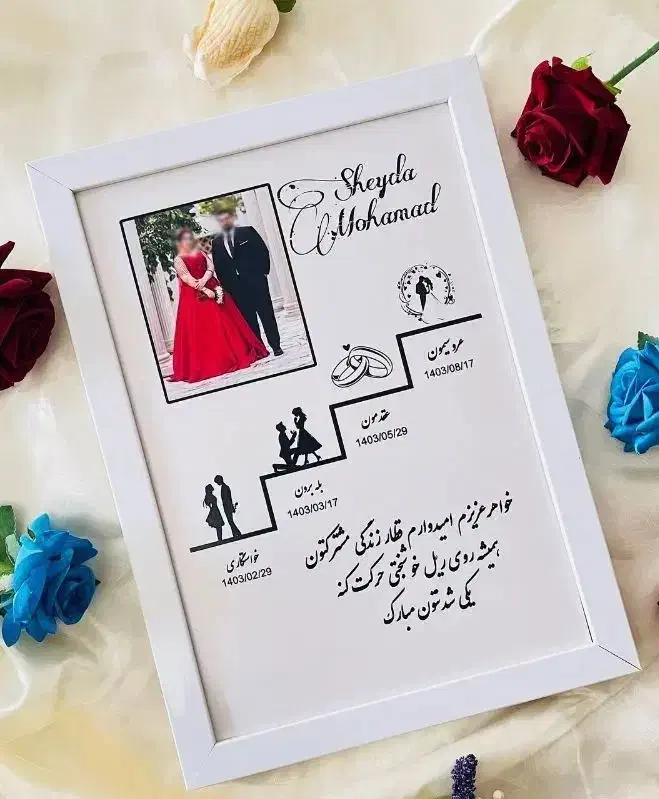 Sheyda
Mohamad
عروسیمون
1403/08/17
عقدمون
1403/05/29
بله برون
1403/03/17
خواستگاری
1403/02/29
خواهر عزیزم امیدوارم قطار زندگی مشترکتون
همیشه روی ریل خوشبختی حرکت کنه
یکی شدنتون مبارک